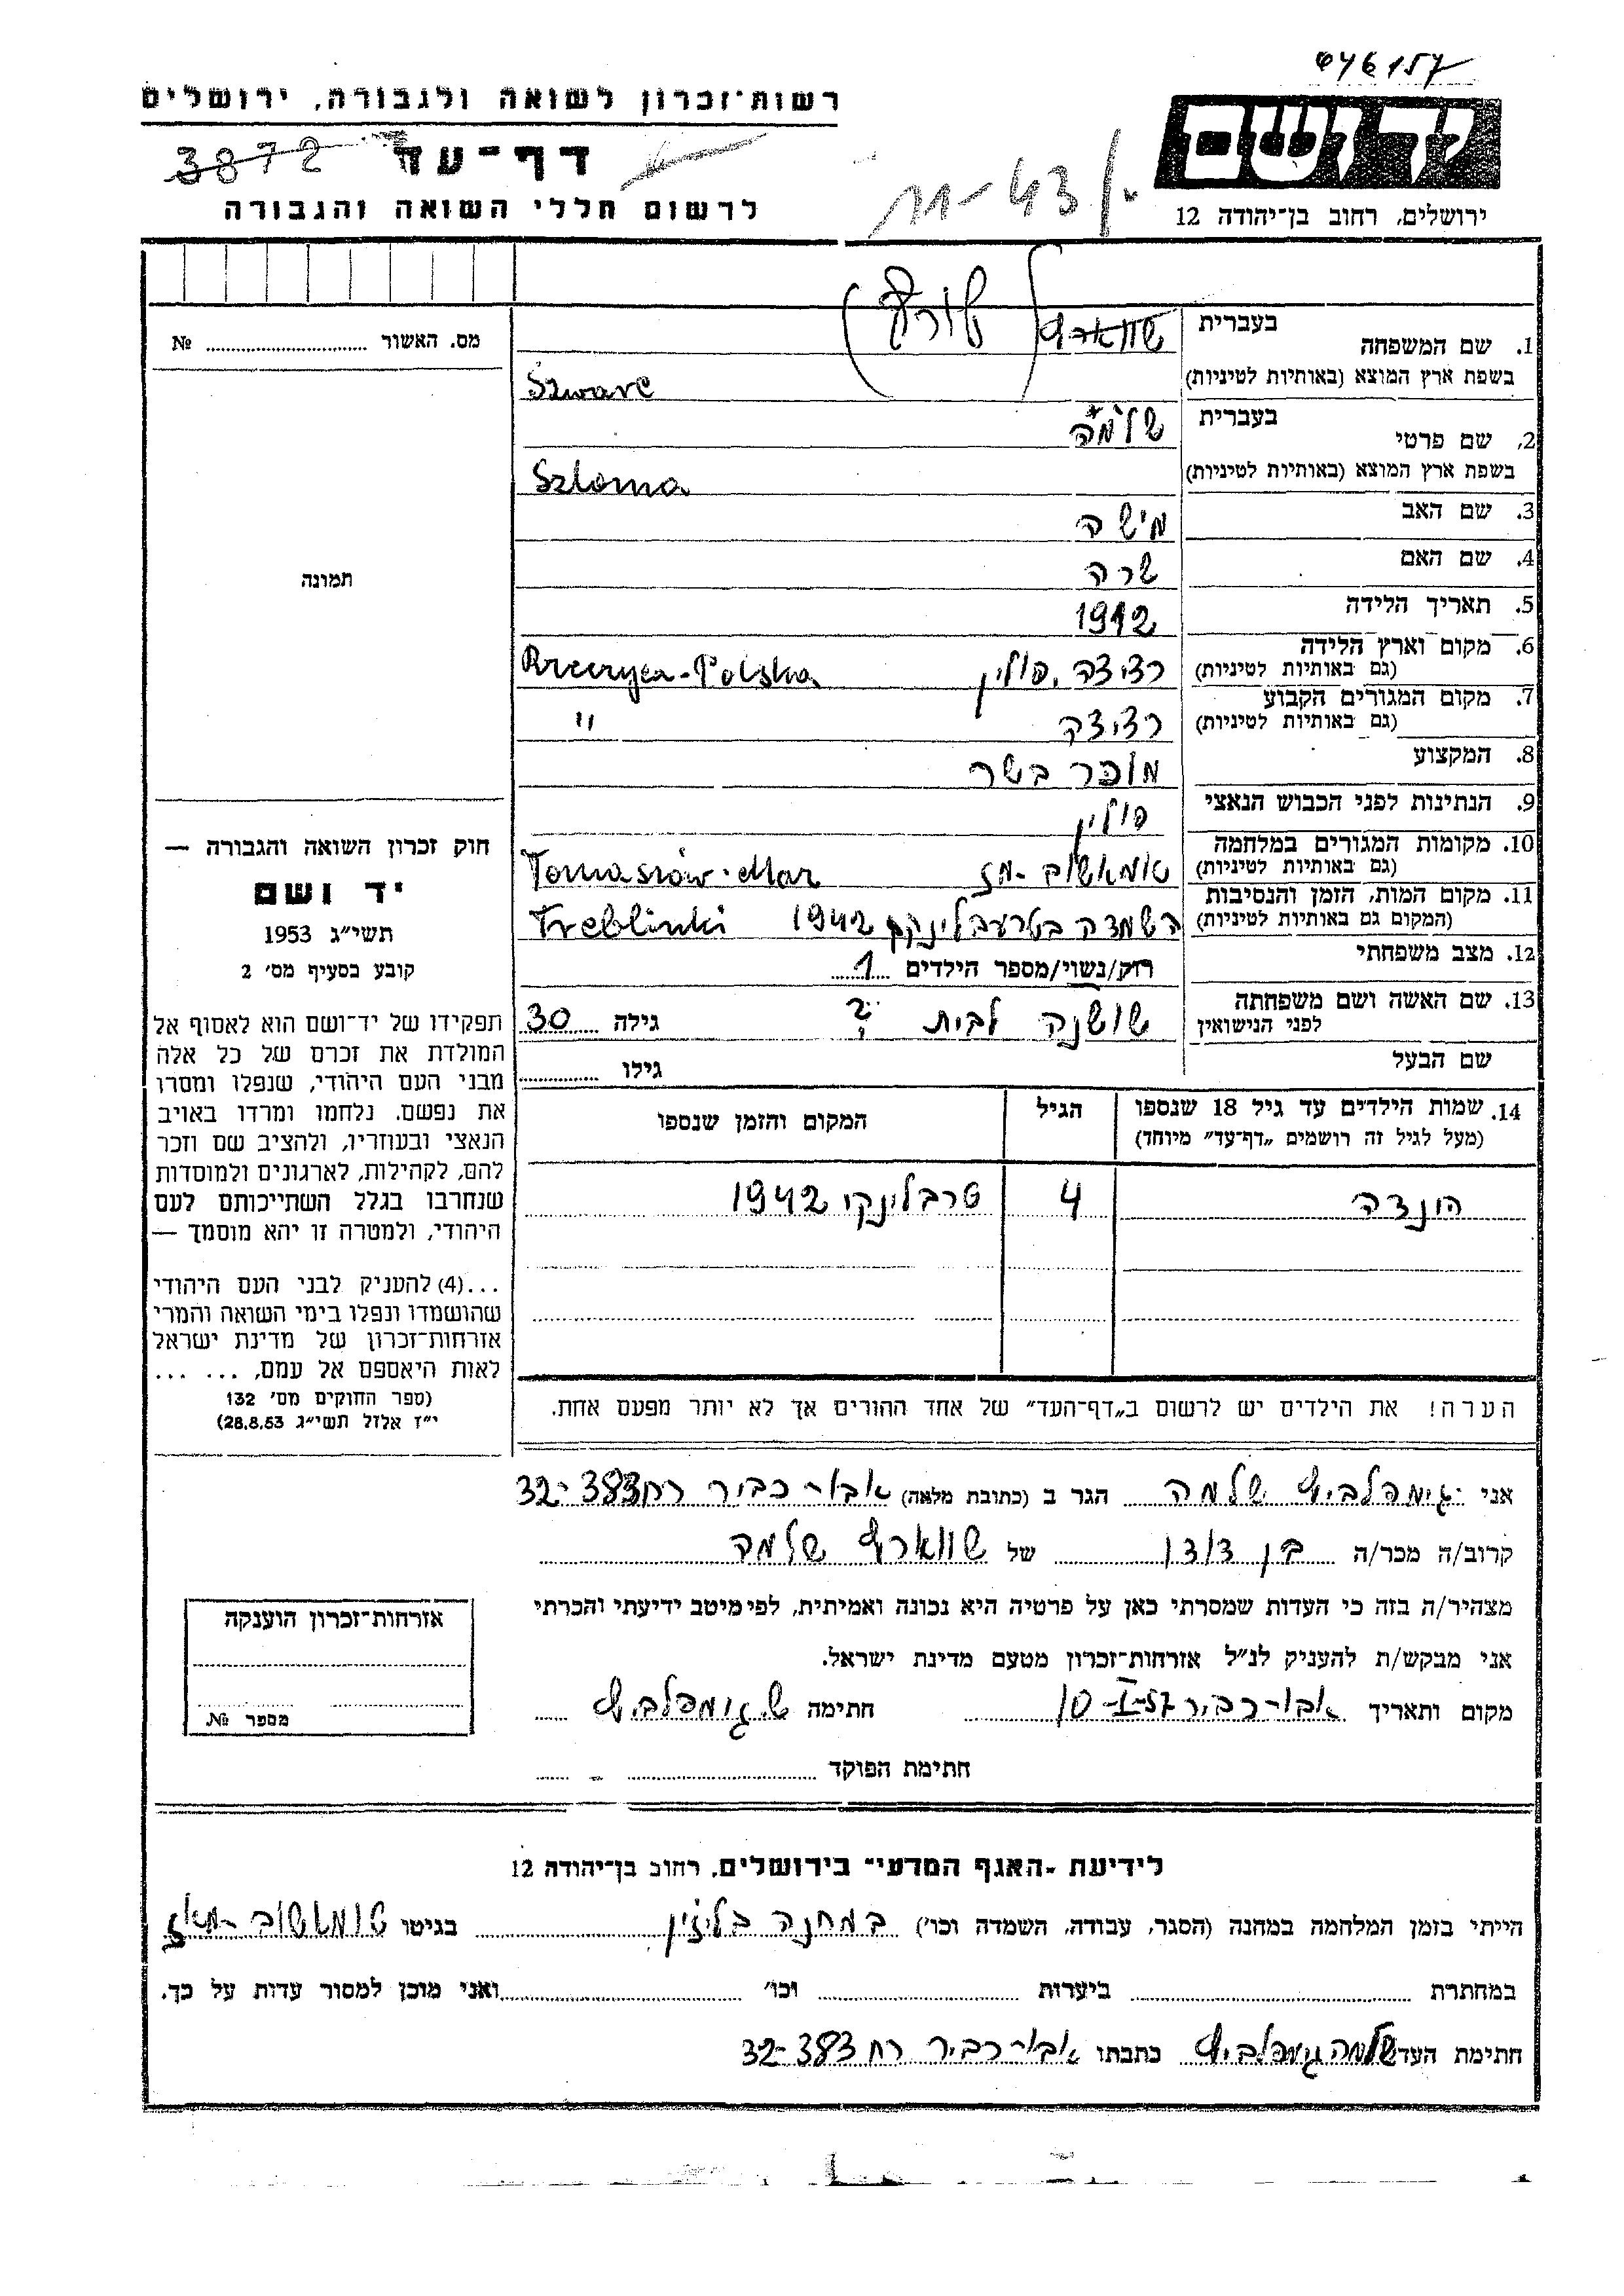 046157
רשות־זכרון לשואה ולגבורה, ירושלים
ידושם
3872
דף־עד
11-43/
לרשום חללי השואה והגבורה
ירושלים, רחוב בן־יהודה 12
מס. האשור № 
1. שם המשפחה בעברית שווארץ (שורץ)
בשפת ארץ המוצא (באותיות לטיניות) Szwarc
2. שם פרטי בעברית שלמה
בשפת ארץ המוצא (באותיות לטיניות) Szloma
3. שם האב מישה
4. שם האם שרה
5. תאריך הלידה 1912
6. מקום וארץ הלידה (גם באותיות לטיניות) רציצה, פולין Rzeczyca-Polska
7. מקום המגורים הקבוע (גם באותיות לטיניות) רציצה "
8. המקצוע מוכר בשר
9. הנתינות לפני הכבוש הנאצי פולין
10. מקומות המגורים במלחמה (גם באותיות לטיניות) טומאשוב-מז Tomaszów-Maz
11. מקום המות, הזמן והנסיבות (המקום גם באותיות לטיניות) השמדה בטרעבלינקה 1942 Treblinki
12. מצב משפחתי רוק/נשוי/מספר הילדים 1
13. שם האשה ושם משפחתה לפני הנישואין שושנה לבית ? גילה 30
שם הבעל גילו
14. שמות הילדים עד גיל 18 שנספו (מעל לגיל זה רושמים „דף־עד” מיוחד) הגיל המקום והזמן שנספו
הונדה 4 טרבלינקי 1942
הערה! את הילדים יש לרשום ב„דף־העד” של אחד ההורים אך לא יותר מפעם אחת.
תמונה
חוק זכרון השואה והגבורה —
יד ושם
תשי״ג 1953
קובע בסעיף מס׳ 2
תפקידו של יד־ושם הוא לאסוף אל
המולדת את זכרם של כל אלה
מבני העם היהודי, שנפלו ומסרו
את נפשם, נלחמו ומרדו באויב
הנאצי ובעוזריו, ולהציב שם וזכר
להם, לקהילות, לארגונים ולמוסדות
שנחרבו בגלל השתייכותם לעם
היהודי, ולמטרה זו יהא מוסמך —
...(4) להעניק לבני העם היהודי
שהושמדו ונפלו בימי השואה והמרי
אזרחות־זכרון של מדינת ישראל
לאות היאספם אל עמם, ... ...
(ספר החוקים מס׳ 132
י״ז אלול תשי״ג 28.8.53)
אני גימפלביץ שלמה הגר ב (כתובת מלאה) אבו-כביר רח 32-383
קרוב/ה מכר/ה בן דודן של שווארץ שלמה
מצהיר/ה בזה כי העדות שמסרתי כאן על פרטיה היא נכונה ואמיתית, לפי מיטב ידיעתי והכרתי
אני מבקש/ת להעניק לנ״ל אזרחות־זכרון מטעם מדינת ישראל.
מקום ותאריך אבו-כביר 10-I-57 חתימה ש. גימפלביץ
חתימת הפוקד
אזרחות־זכרון הוענקה
מספר №
לידיעת ״האגף המדעי״ בירושלים, רחוב בן־יהודה 12
הייתי בזמן המלחמה במחנה (הסגר, עבודה, השמדה וכו׳) במחנה בליזין בגיטו טומאשוב-מאז
במחתרת ביערות וכו׳ ואני מוכן למסור עדות על כך.
חתימת העד שלמה גימפלביץ כתבתו אבו-כביר רח 32-383